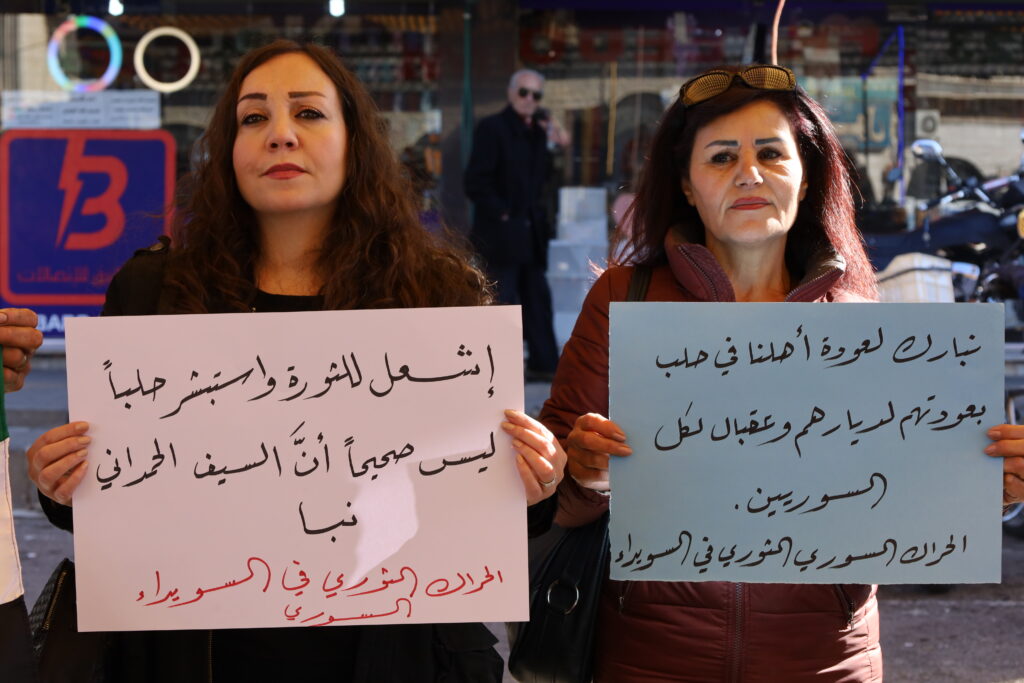 إشعل للثورة واستبشر حلباً
ليس صحيحاً أنَّ السيف الحمداني
نبا
الحراك الثوري في السويداء
السوري
نبارك لعودة أهلنا في حلب
بعودتهم لديارهم وعقبال لكل
السوريين.
الحراك السوري الثوري في السويداء
B
للإتصالات